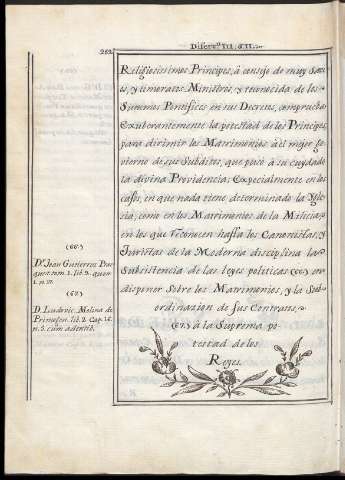 Discurso III. §. II.
252
Religiosissimos Principes, á consejo de muy Sau
os, y timoratos Ministros, y reconocida de los
Sumos Pontifices en sus Decretos, comprueba
Exuberantemente la potestad de los Principes,
para dirimir los Matrimonios á el mejor go
vierno de sus Subditos, que puso à su cuydado
la divina Providencia; Expecialmente en los
casos, en que nada tiene determinado la Ygle
sia, como en los Matrimonios de la Milicia;
en los que reconocen hasta los Canonistas, y
Juristas de la Moderna disciplina la
Subsistencia de las leyes politicas (66) en
disponer Sobre los Matrimonios, y la Sub
ordinazion de sus Contratos,
(67) à la Suprema po
testad de los
Reyes.
(66)
Dn. Juan Gutierrez Prac
quest. tom. 1. lib. 2. quest.
1. n.
(67)
D. Ludovic. Molina de
Primogen. lib. 2. Cap. 15.
n. 3. cum adentib.